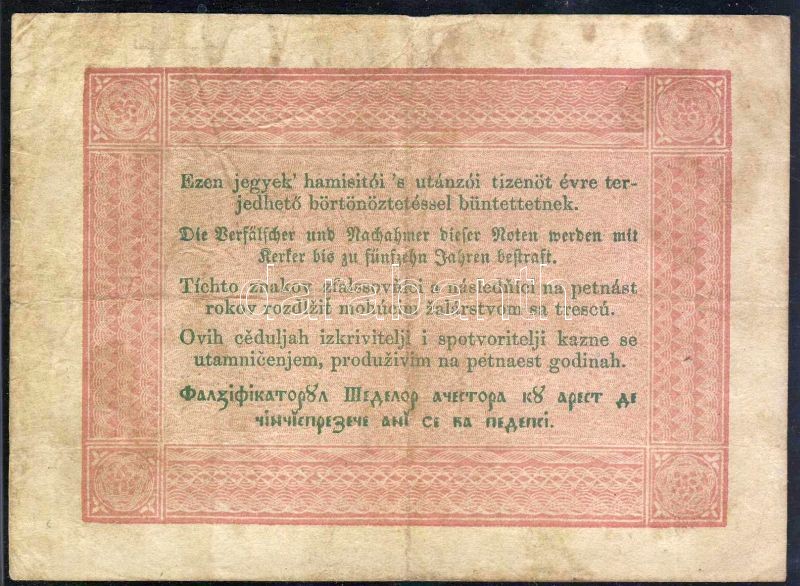 Ezen jegyek' hamisitói 's utánzói tizenöt évre ter-
jedhető börtönöztetéssel büntettetnek.
Die Verfälscher und Nachahmer dieser Noten werden mit
Kerker bis zu fünfzehn Jahren bestraft.
Tíchto znakov zfalosovňíci a následňíci na petnást
rokov rozdlžit mohúcou žalárstvom sa trescú.
Ovih cěduljah izkrivitelji i spotvoritelji kazne se
utamničenjem, produživim na petnaest godinah.
Фалзіфікаторꙋл Шеделор ачестора кꙋ арест де
чінчіспрезече ані се ва педепсі.
darabanth